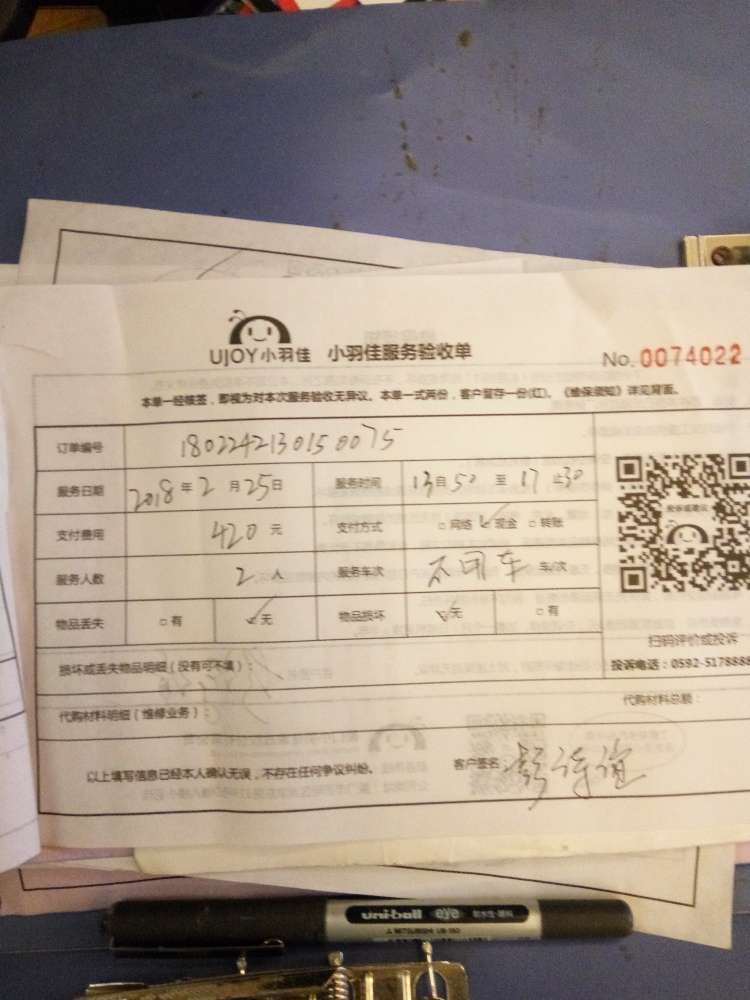 UJOY小羽佳 小羽佳服务验收单 No. 0074022
本单一经核签，即视为对本次服务验收无异议。本单一式两份，客户留存一份(红)。《维保须知》详见背面。
订单编号 180224213015 0075
服务日期 2018年2月25日 服务时间 13自50至17止30
支付费用 420元 支付方式 □网络 ✓现金 □转账
服务人数 2人 服务车次 不用车 车/次
物品丢失 □有 ✓无 物品损坏 ✓无 □有
扫码评价或投诉
损坏或丢失物品明细（没有可不填）： 投诉电话：0592-5178888
代购材料明细（维修业务）： 代购材料总额：
以上填写信息已经本人确认无误，不存在任何争议纠纷。 客户签名：彭诗谊
uni-ball eye 耐水性·顔料
MITSUBISHI UB-150